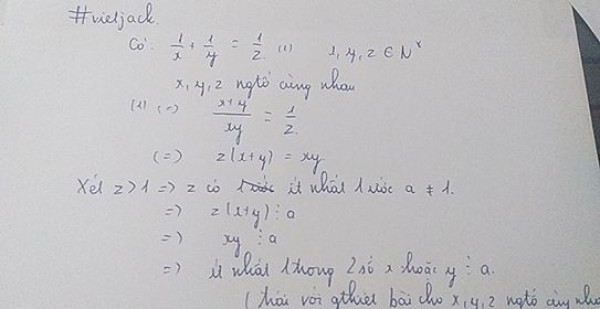 #vietjack.
Có: 1/x + 1/y = 1/z (1) x, y, z ∈ N*
x, y, z ngtố cùng nhau
(1) (=) x+y/xy = 1/z
(=) z(x+y) = xy
Xét z > 1 => z có ít nhất 1 ước a ≠ 1.
=> z(x+y) ⋮ a
=> xy ⋮ a
=> ít nhất 1 trong 2 số x hoặc y ⋮ a.
(trái với gthiết bài cho x, y, z ngtố cùng nha